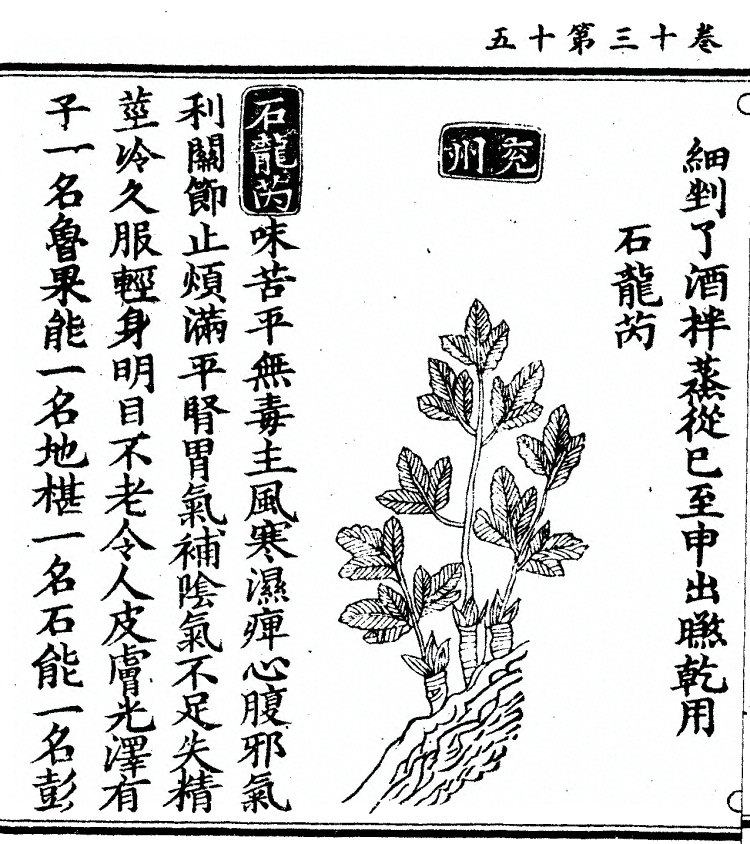 卷十三第十五
細剉了酒拌蒸從巳至申出㬠乾用
石龍芮
兖州
石龍芮味苦平無毒主風寒濕痺心腹邪氣
利關節止煩滿平腎胃氣補陰氣不足失精
莖冷久服輕身明目不老令人皮膚光澤有
子一名魯果能一名地椹一名石能一名彭